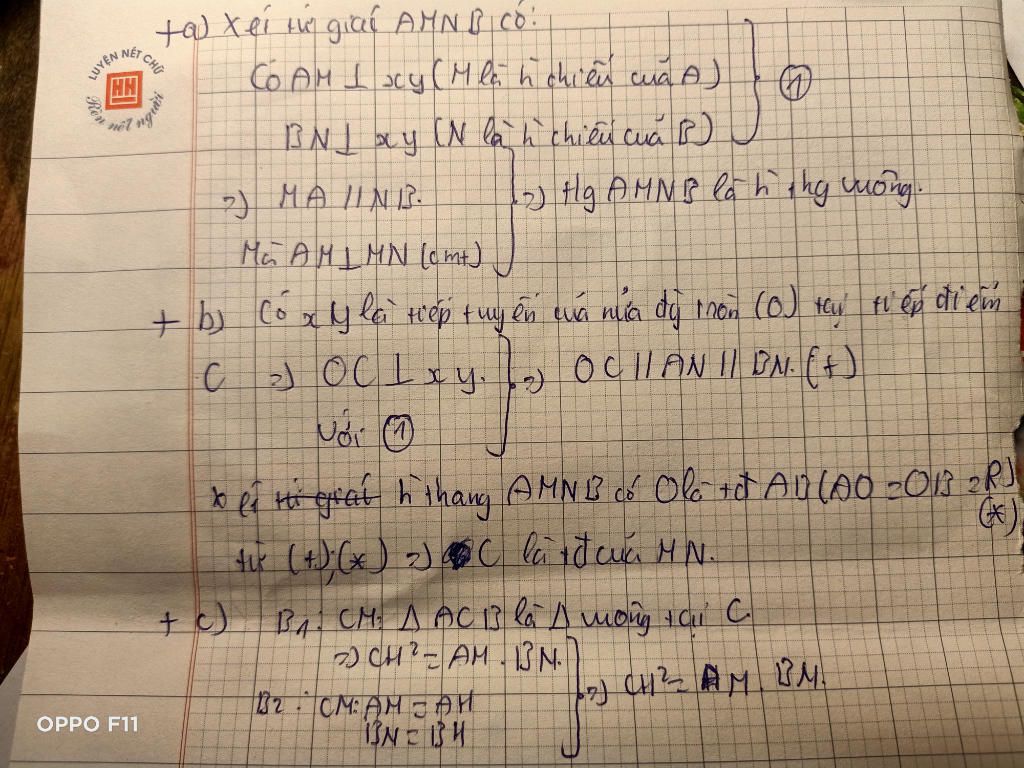 +a) Xét tứ giác AMNB có:
LUYỆN NÉT CHỮ
HH
Rèn nết người
Có AM ⊥ xy (M là h̀ chiếu của A)
BN ⊥ xy (N là h̀ chiếu của B)
①
=> MA // NB.
Mà AM ⊥ MN (cmt)
=> Htg AMNB là h̀ thg vuông.
+ b) Có xy là tiếp tuyến của nửa đg tròn (O) tại tiếp điểm
C => OC ⊥ xy.
Với ①
=> OC // AN // BN. (+)
xét tứ giác h̀ thang AMNB có O là tđ AB (AO = OB = R)
(*)
từ (+); (*) => C là tđ của MN.
+ c) B1: CM: Δ ACB là Δ vuông tại C
=> CH² = AH . BN.
B2: CM: AM = AH
BN = BH
=> CH² = AM . BM.
OPPO F11